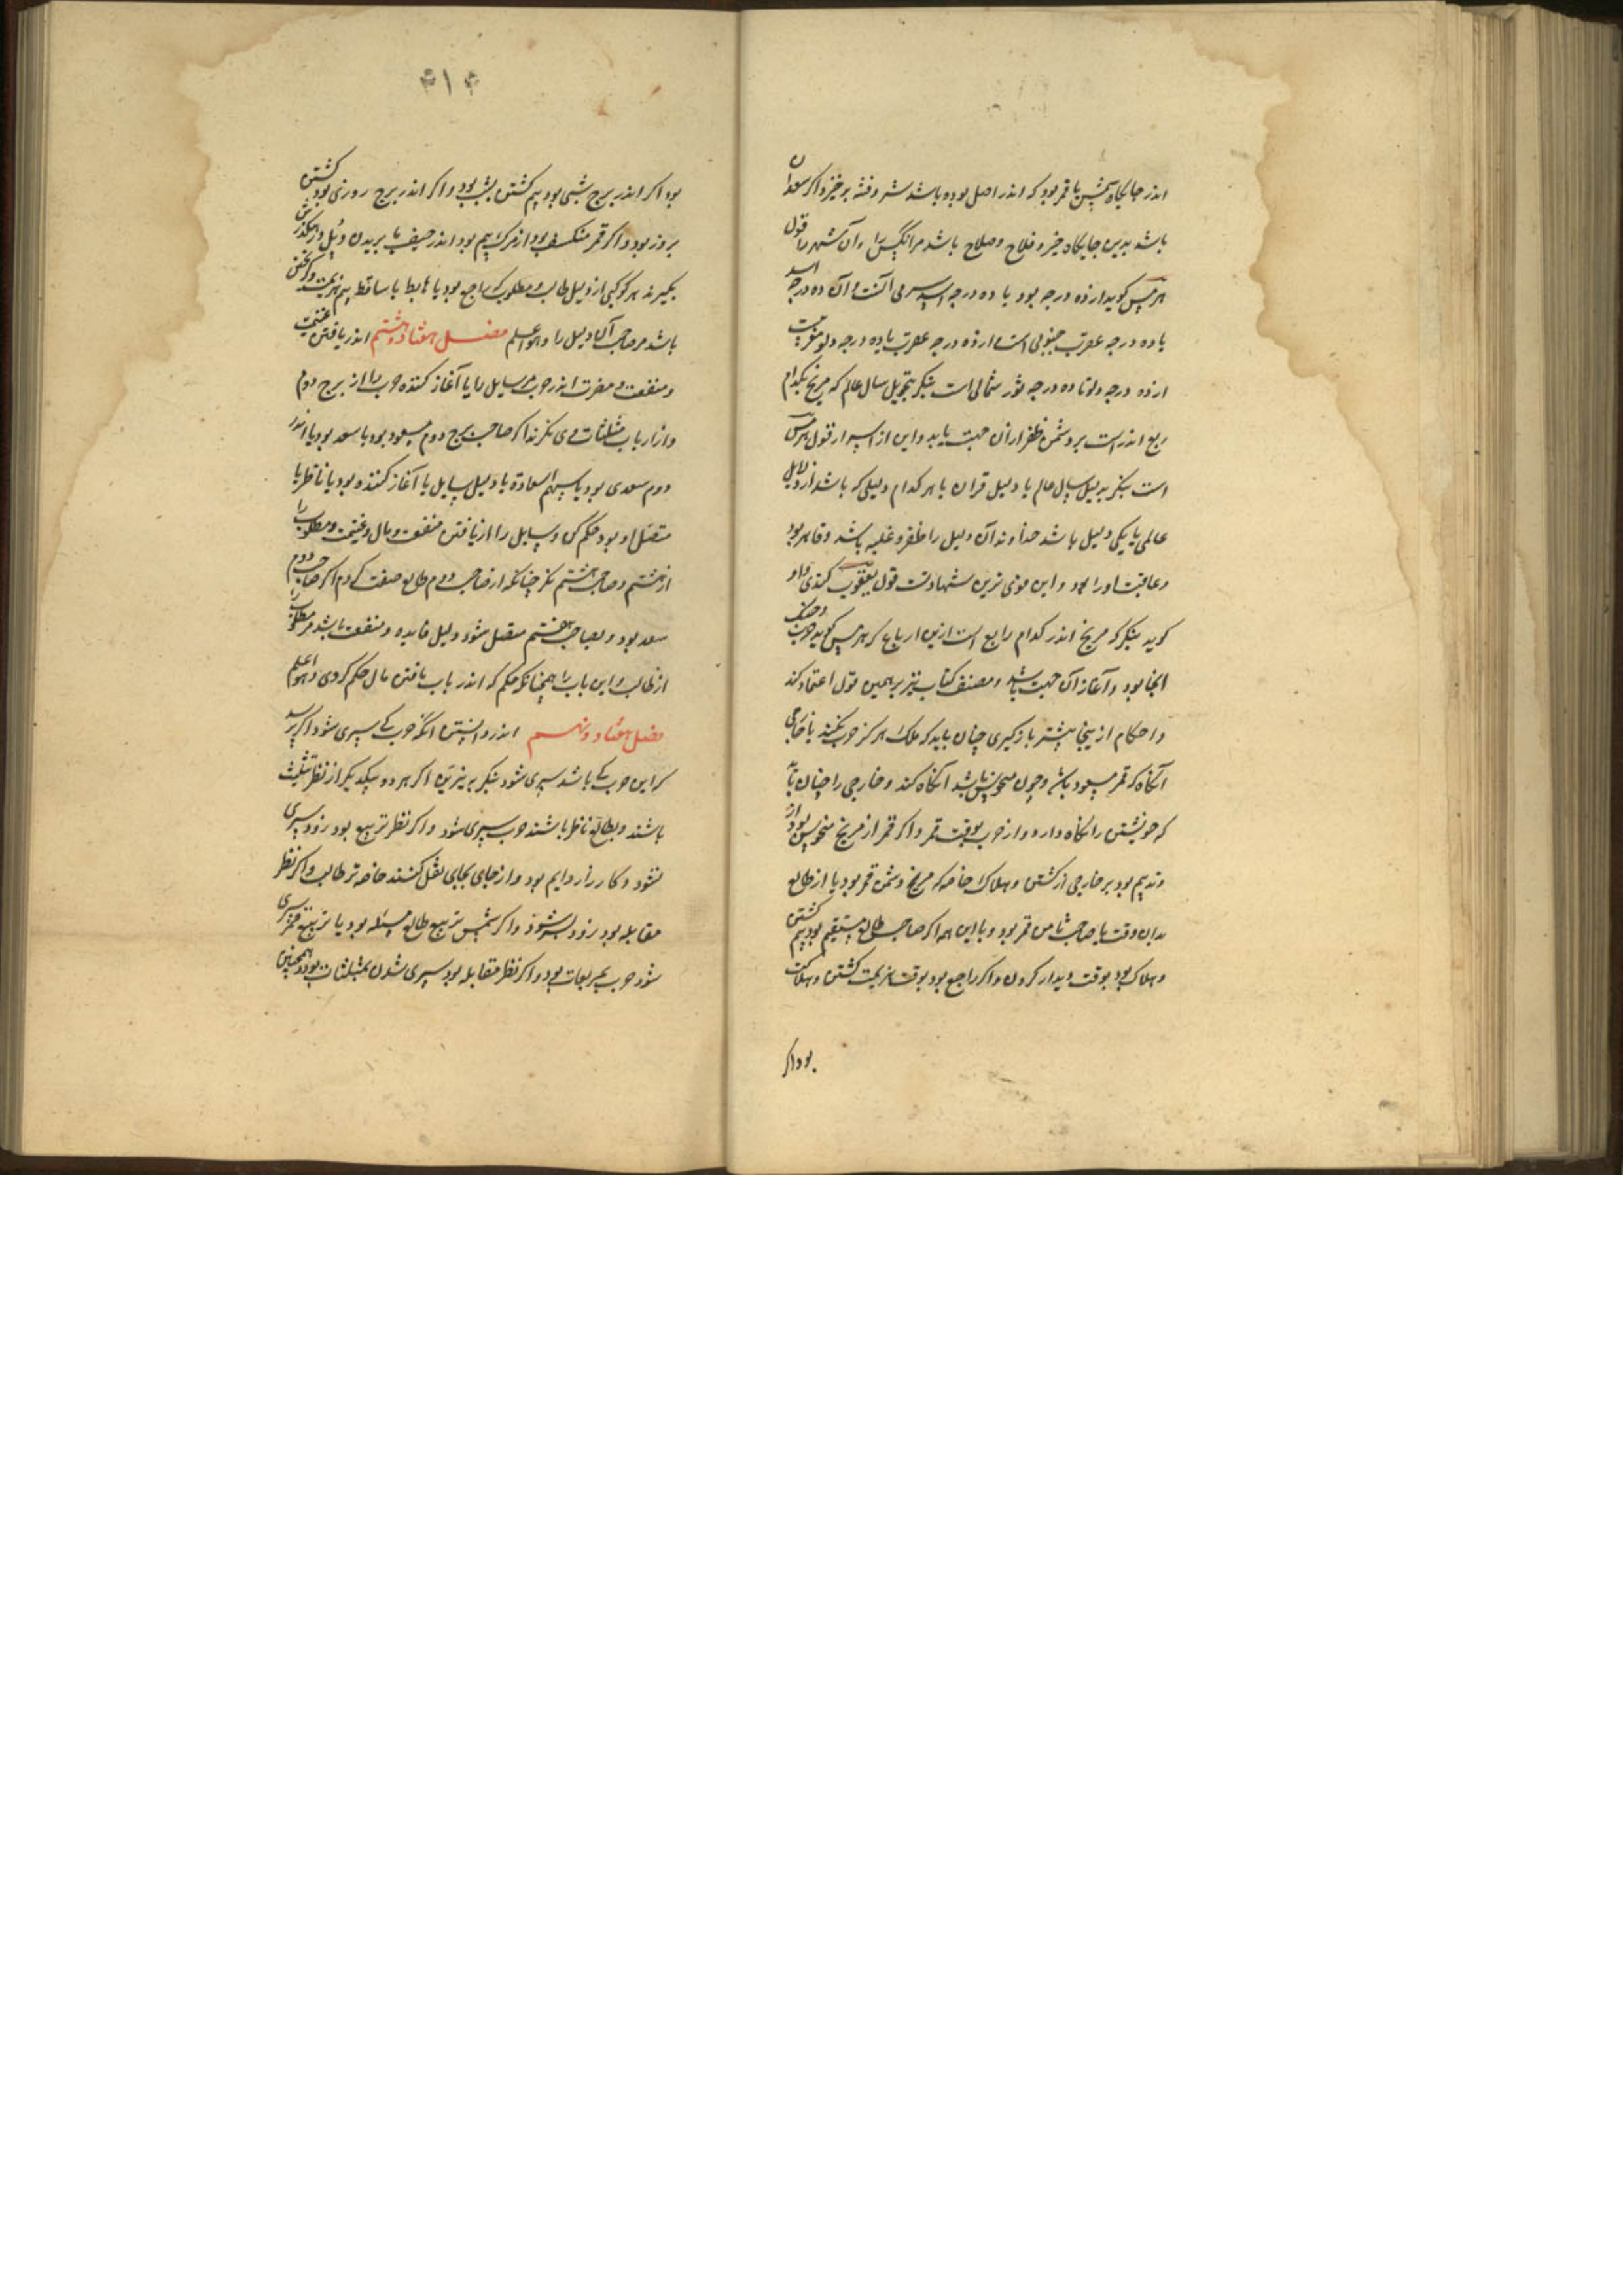 اندر جایگاه شمس یا قمر بود که اندر اصل بوده باشد شر و فتنه برخیزد و اگر سعدان
باشد بدین جایگاه خیر و فلاح و صلاح باشد مر انکس را و آن شهر را قول
هرمس کوید از ده درجه بود یا ده درجه اسد آنست و آن ده درجه اسد
با ده درجه عقرب جنوبی است از ده درجه عقرب تا ده درجه دلو مغربیست
از ده درجه دلو تا ده درجه ثور شمالی است بنکر بتحویل سال عالم که مریخ بکدام
ربع اندر است بر دشمن ظفر از آن جهت یابد و این از قول هرمس
است بنکر بدلیل سال عالم یا دلیل قران یا هر کدام دلیلی که باشد از دلایل
عالمی یا یکی دلیل باشد خداوند آن دلیل را ظفر و غلبه باشد و قاهر بود
و عاقبت او را بود و این قوی ترین شهادتست قول یعقوب کندی و او
کوید بنکر که مریخ اندر کدام رابع است ازین ارباع که هرمس کوید حرب و جنک
انجا بود و آغاز از آن جهت باشد و مصنف کتاب نیز بر همین قول اعتماد کند
و احکام از ینجا بیشتر باز کیری چنان باید که ملک هرکز حرب نکند با خارجی
آنکاه که قمر مسعود باشد و چون منحوس باشد آنکاه کند و خارجی را چنان باید
که خویشتن را نکاه دارد و از حرب بوقت قمر و اکر قمر از مریخ منحوس بود از
و ندیم بود بر خارجی از کشتن و هلاک خاصه که مریخ دشمن قمر بود یا از طالع
بدان وقت یا صاحب ثامن قمر بود و با این همه اکر صاحب طالع مستقیم بود بیم کشتن
و هلاک بود بوقت دیدار کردن و اکر راجع بود بوقت هزیمت کشتن و هلاکت
بود اکر
۴۱۴
بود اکر اندر برج شبی بود بیم کشتن بشب بود و اکر اندر برج روزی بود کشتن
بروز بود و اکر قمر منکسف بود از مرک بیم بود اندر حیف یا بریدن
بکیرند هر کوکبی از دلیل طالب و مطلوب که راجع بود یا هابط یا ساقط بیم هزیمت و کریختن
باشد مر صاحب آن دلیل را و هو اعلم فصل هفتاد و هشتم اندر یافتن غنیمت
و منفعت و مضرت اندر حرب مر سایل را یا آغاز کننده حرب را از برج دوم
و از ارباب مثلثات وی نکرند اکر صاحب برج دوم مسعود بود یا سعد بود یا اندر
دوم سعدی بود یا سهم السعادة با دلیل سایل یا آغاز کننده بود یا ناظر یا
متصل او بود حکم کن و سایل را از یافتن منفعت و مال و غنیمت و مطلوب را
از هشتم و صاحب هشتم نکر چنانکه از صاحب دوم طالع صفت کردم اکر صاحب دوم
سعد بود و بصاحب هفتم متصل شود دلیل فایده و منفعت باشد مر مطلوب را
از طالب و این باب را همچنانکه حکم که اندر باب یافتن مال حکم کردی و هو اعلم
فصل هفتاد و نهم اندر دانستن انکه حرب کی سپری شود اکر پرسد
که این حرب کی باشد سپری شود بنکر به نیرین اکر هر دو بیکدیکر از نظر تثلیث
باشند و بطالع ناظر باشند حرب سپری شود و اکر نظر تربیع بود زود سپری
نشود و کارزار دایم بود و از جای بجای نقل کنند خاصه تر طالب و اکر نظر
مقابله بود زود بسر شود و اکر شمس تربیع طالع مسئله بود یا تربیع قمر سپری
شود حرب بمربعات بود و اکر نظر مقابله بود سپری شدن بمثلثات بود و همچنین